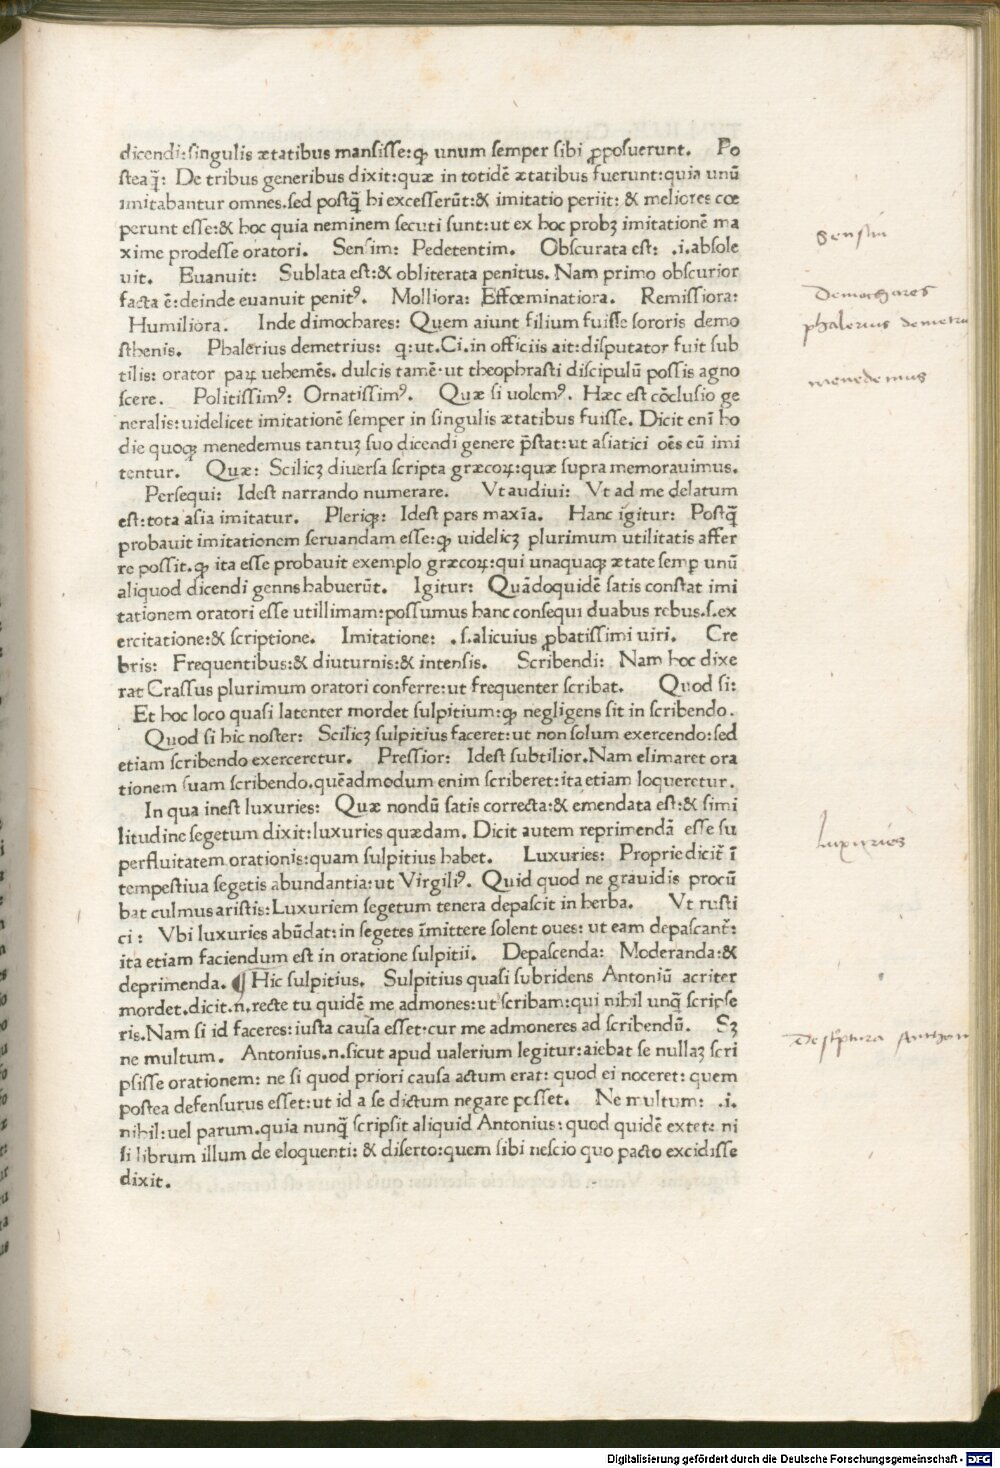 dicendi:singulis ætatibus mansisse:ꝙ unum semper sibi ꝓposuerunt. Po
steaq̃: De tribus generibus dixit:quæ in totidẽ ætatibus fuerunt:quia unũ
imitabantur omnes.sed postq̃ hi excesserũt:& imitatio periit: & meliores cœ
perunt esse:& hoc quia neminem secuti sunt:ut ex hoc probꝫ imitationẽ ma
xime prodesse oratori. Sensim: Pedetentim. Obscurata est: .i.absole
uit. Euanuit: Sublata est:& obliterata penitus. Nam primo obscurior
facta ẽ:deinde euanuit penitꝰ. Molliora: Effœminatiora. Remissiora:
Humiliora. Inde dimochares: Quem aiunt filium fuisse sororis demo
sthenis. Phalerius demetrius: q:ut.Ci.in officiis ait:disputator fuit sub
tilis: orator paꝝ uehemẽs. dulcis tamẽ·ut theophrasti discipulũ possis agno
scere. Politissimꝰ: Ornatissimꝰ. Quæ si uolemꝰ. Hæc est cõclusio ge
neralis:uidelicet imitationẽ semper in singulis ætatibus fuisse. Dicit enĩ ho
die quoqꝫ menedemus tantuꝫ suo dicendi genere p̃stat:ut asiatici oẽs eũ imi
tentur. Quæ: Scilicꝫ diuersa scripta græcoꝝ:quæ supra memorauimus.
Persequi: Idest narrando numerare. Vt audiui: Vt ad me delatum
est:tota asia imitatur. Pleriqꝫ: Idest pars maxĩa. Hanc igitur: Postq̃
probauit imitationem seruandam esse:ꝙ uidelicꝫ plurimum utilitatis affer
re possit.ꝙ ita esse probauit exemplo græcoꝝ:qui unaquaqꝫ ætate semꝑ unũ
aliquod dicendi genns habuerũt. Igitur: Quãdoquidẽ satis constat imi
tationem oratori esse utillimam:possumus hanc consequi duabus rebus.s.ex
ercitatione:& scriptione. Imitatione: .s.alicuius ꝓbatissimi uiri. Cre
bris: Frequentibus:& diuturnis:& intensis. Scribendi: Nam hoc dixe
rat Crassus plurimum oratori conferre:ut frequenter scribat. Quod si:
Et hoc loco quasi latenter mordet sulpitium:ꝙ negligens sit in scribendo.
Quod si hic noster: Scilicꝫ sulpitius faceret:ut non solum exercendo:sed
etiam scribendo exerceretur. Pressior: Idest subtilior.Nam elimaret ora
tionem suam scribendo.quẽadmodum enim scriberet:ita etiam loqueretur.
In qua inest luxuries: Quæ nondũ satis correcta:& emendata est:& simi
litudine segetum dixit:luxuries quædam. Dicit autem reprimendã esse su
perfluitatem orationis:quam sulpitius habet. Luxuries: Proprie dicit̃ ĩ
tempestiua segetis abundantia:ut Virgiliꝰ. Quid quod ne grauidis procũ
bat culmus aristis:Luxuriem segetum tenera depascit in herba. Vt rusti
ci: Vbi luxuries abũdat:in segetes ĩmittere solent oues: ut eam depascant̃:
ita etiam faciendum est in oratione sulpitii. Depascenda: Moderanda:&
deprimenda. ¶ Hic sulpitius. Sulpitius quasi subridens Antoniũ acriter
mordet.dicit.n.recte tu quidẽ me admones:ut scribam:qui nihil unq̃ scripse
ris.Nam si id faceres:iusta causa esset:cur me admoneres ad scribendũ. Sꝫ
ne multum. Antonius.n.sicut apud ualerium legitur:aiebat se nullaꝫ scri
psisse orationem: ne si quod priori causa actum erat: quod ei noceret: quem
postea defensurus esset:ut id a se dictum negare posset. Ne multum: .i.
nihil:uel parum.quia nunq̃ scripsit aliquid Antonius:quod quidẽ extet: ni
si librum illum de eloquenti: & diserto:quem sibi nescio quo pacto excidisse
dixit.
Sensim
Demochares
phalerius demetriu
menedemus
Luxuries